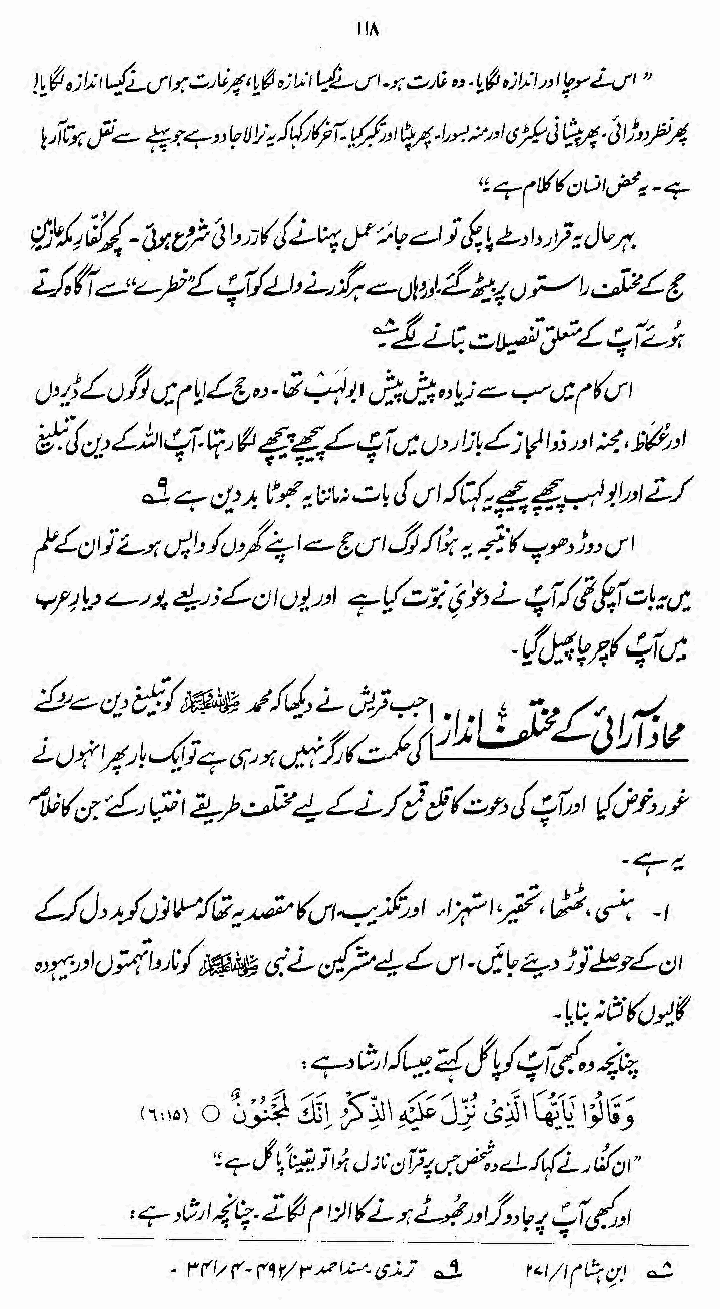 ۱۱۸
” اس نے سوچا اور اندازہ لگایا۔ وہ غارت ہو۔ اس نے کیسا اندازہ لگایا، پھر غارت ہو اس نے کیسا اندازہ لگایا!
پھر نظر دوڑائی۔ پھر پیشانی سیکڑی اور منہ بسورا۔ پھر پلٹا اور تکبر کیا۔ آخرکار کہا کہ یہ نرالا جادو ہے جو پہلے سے نقل ہوتا آ رہا
ہے۔ یہ محض انسان کا کلام ہے۔“
بہرحال یہ قرارداد طے پا چکی تو اسے جامۂ عمل پہنانے کی کارروائی شروع ہوئی۔ کچھ کفارِ مکہ عازمینِ
حج کے مختلف راستوں پر بیٹھ گئے اور وہاں سے ہر گذرنے والے کو آپؐ کے ”خطرے“ سے آگاہ کرتے
ہوئے آپؐ کے متعلق تفصیلات بتانے لگے۔ ۸
اس کام میں سب سے زیادہ پیش پیش ابولہب تھا۔ وہ حج کے ایام میں لوگوں کے ڈیروں
اور عُکاظ، مجنہ اور ذوالمجاز کے بازاروں میں آپؐ کے پیچھے پیچھے لگا رہتا۔ آپؐ اللہ کے دین کی تبلیغ
کرتے اور ابولہب پیچھے پیچھے یہ کہتا کہ اس کی بات نہ ماننا یہ جھوٹا بد دین ہے ۹
اس دوڑ دھوپ کا نتیجہ یہ ہوا کہ لوگ اس حج سے اپنے گھروں کو واپس ہوئے تو ان کے علم
میں یہ بات آ چکی تھی کہ آپؐ نے دعوٰئ نبوّت کیا ہے اور یوں ان کے ذریعے پورے دیارِ عرب
میں آپؐ کا چرچا پھیل گیا۔
محاذ آرائی کے مختلف انداز
جب قریش نے دیکھا کہ محمد ﷺ کو تبلیغِ دین سے روکنے
کی حکمت کارگر نہیں ہو رہی ہے تو ایک بار پھر انہوں نے
غور و خوض کیا اور آپؐ کی دعوت کا قلع قمع کرنے کے لیے مختلف طریقے اختیار کئے جن کا خلاصہ
یہ ہے۔
۱۔ ہنسی، ٹھٹھا، تحقیر، استہزاء اور تکذیب۔ اس کا مقصد یہ تھا کہ مسلمانوں کو بد دل کر کے
ان کے حوصلے توڑ دیئے جائیں۔ اس کے لیے مشرکین نے نبی ﷺ کو ناروا تہمتوں اور بیہودہ
گالیوں کا نشانہ بنایا۔
چنانچہ وہ کبھی آپؐ کو پاگل کہتے جیسا کہ ارشاد ہے:
وَقَالُوْا يٰٓاَيُّهَا الَّذِىْ نُزِّلَ عَلَيْهِ الذِّكْرُ اِنَّكَ لَمَجْنُوْنٌ ○ (۶:۱۵)
”ان کفار نے کہا کہ اے وہ شخص جس پر قرآن نازل ہوا تو یقیناً پاگل ہے۔“
اور کبھی آپؐ پر جادوگر اور جھوٹے ہونے کا الزام لگاتے۔ چنانچہ ارشاد ہے:
۸ ابن ہشام ۱/ ۲۷۱ ۹ ترمذی۔ مسند احمد ۳/ ۴۹۲ - ۴/ ۳۴۱ -